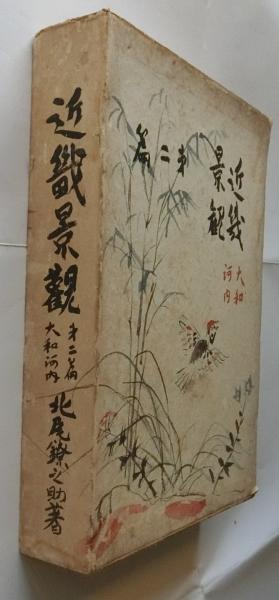 近畿景觀
第二篇
大和河内
北尾鐐之助著
近畿
景觀
大和
河内
第二
篇